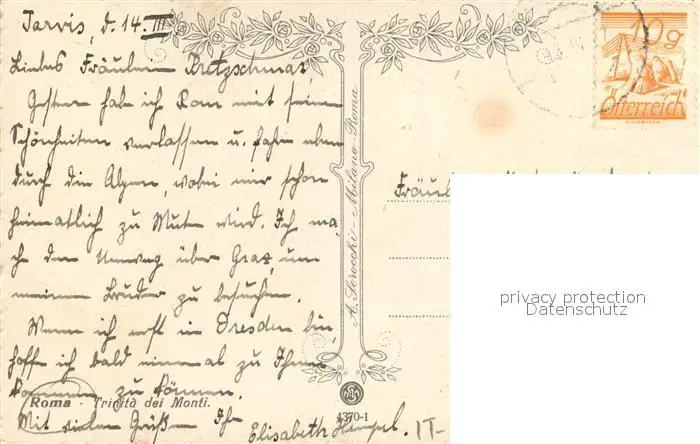 Tarvis, d. 14. III
Liebes Fräulein Pretzschner,
Gestern hab ich Rom mit seinen
Schönheiten verlassen u. fahre eben
durch die Alpen, wobei mir schon
heimatlich zu Mute wird. Ich ma-
che den Umweg über Graz, um
meinen Bruder zu besuchen.
Wenn ich erst in Dresden bin,
hoffe ich bald einmal zu Ihnen
kommen zu können.
Roma - Trinità dei Monti.
Mit vielen Grüßen Ihre
Elisabeth Hempel.
A. Scrocchi - Milano-Roma
4370-1
10g
Österreich
Fräul
privacy protection
Datenschutz